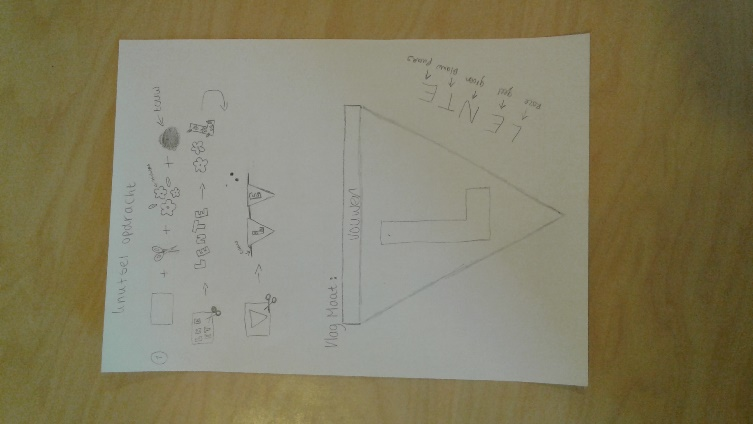 knutsel opdracht
1
touw
LENTE
L E
vlag Maat:
vouwen
L
L E N T E
roze geel groen blauw paars